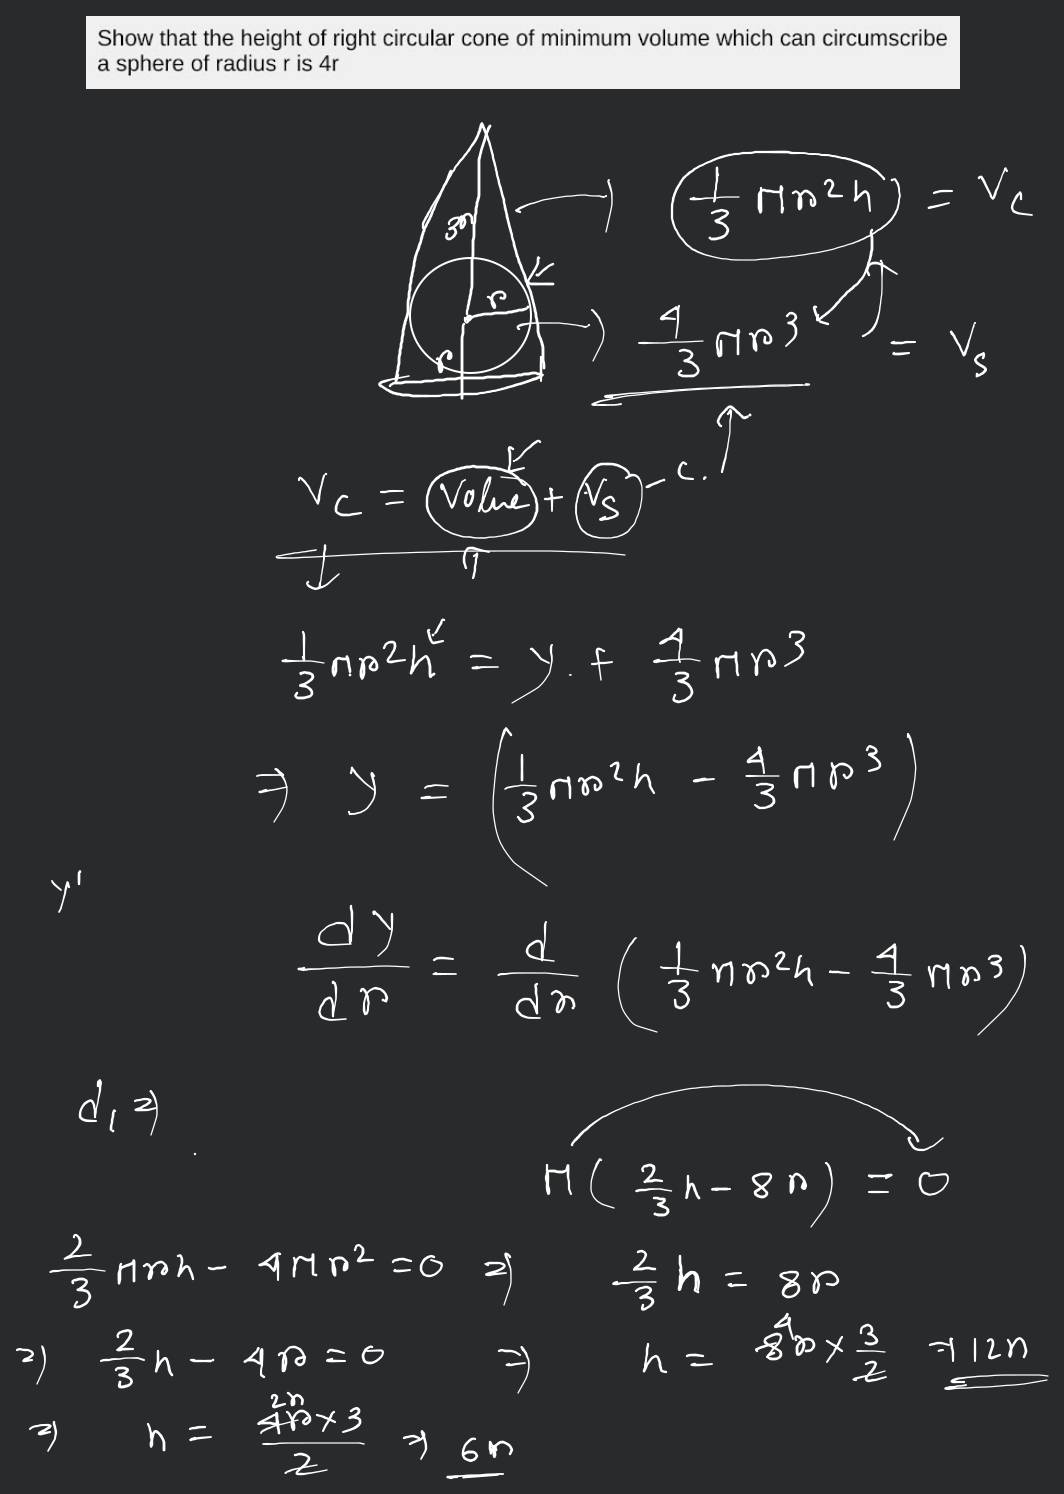 Show that the height of right circular cone of minimum volume which can circumscribe
a sphere of radius r is 4r
3r
r
r
1/3 πr²h = Vc
4/3 πr³ = Vs
Vc = Volume + Vs - c.
1/3 πr²h = y. + 4/3 πr³
⇒ y = (1/3 πr²h - 4/3 πr³)
y'
dy/dr = d/dr (1/3 πr²h - 4/3 πr³)
d, ⇒
π(2/3 h - 8r) = 0
2/3 πrh - 4πr² = 0 ⇒ 2/3 h = 8r
⇒ 2/3 h - 4r = 0 ⇒ h = 8r × 3/2 ⇒ 12r
4
2r
⇒ h = 4r×3/2 ⇒ 6r